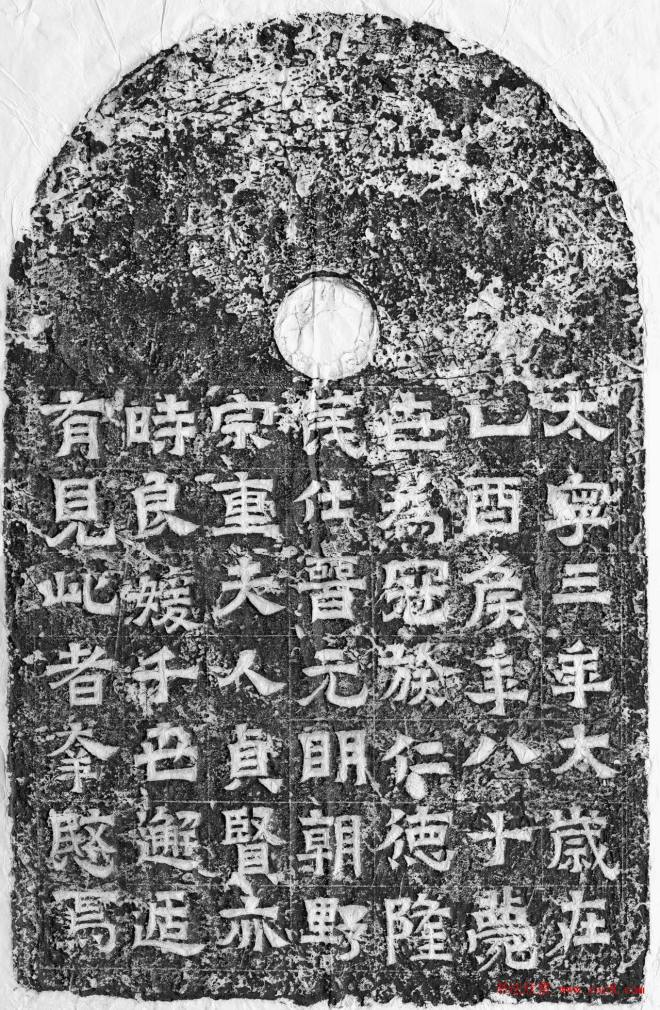 太寧三年太歲在
乙酉侯年八十薨
世為冠族仁德隆
茂仕晉元明朝野
宗重夫人貞賢亦
時良媛千世邂逅
有見此者幸愍焉